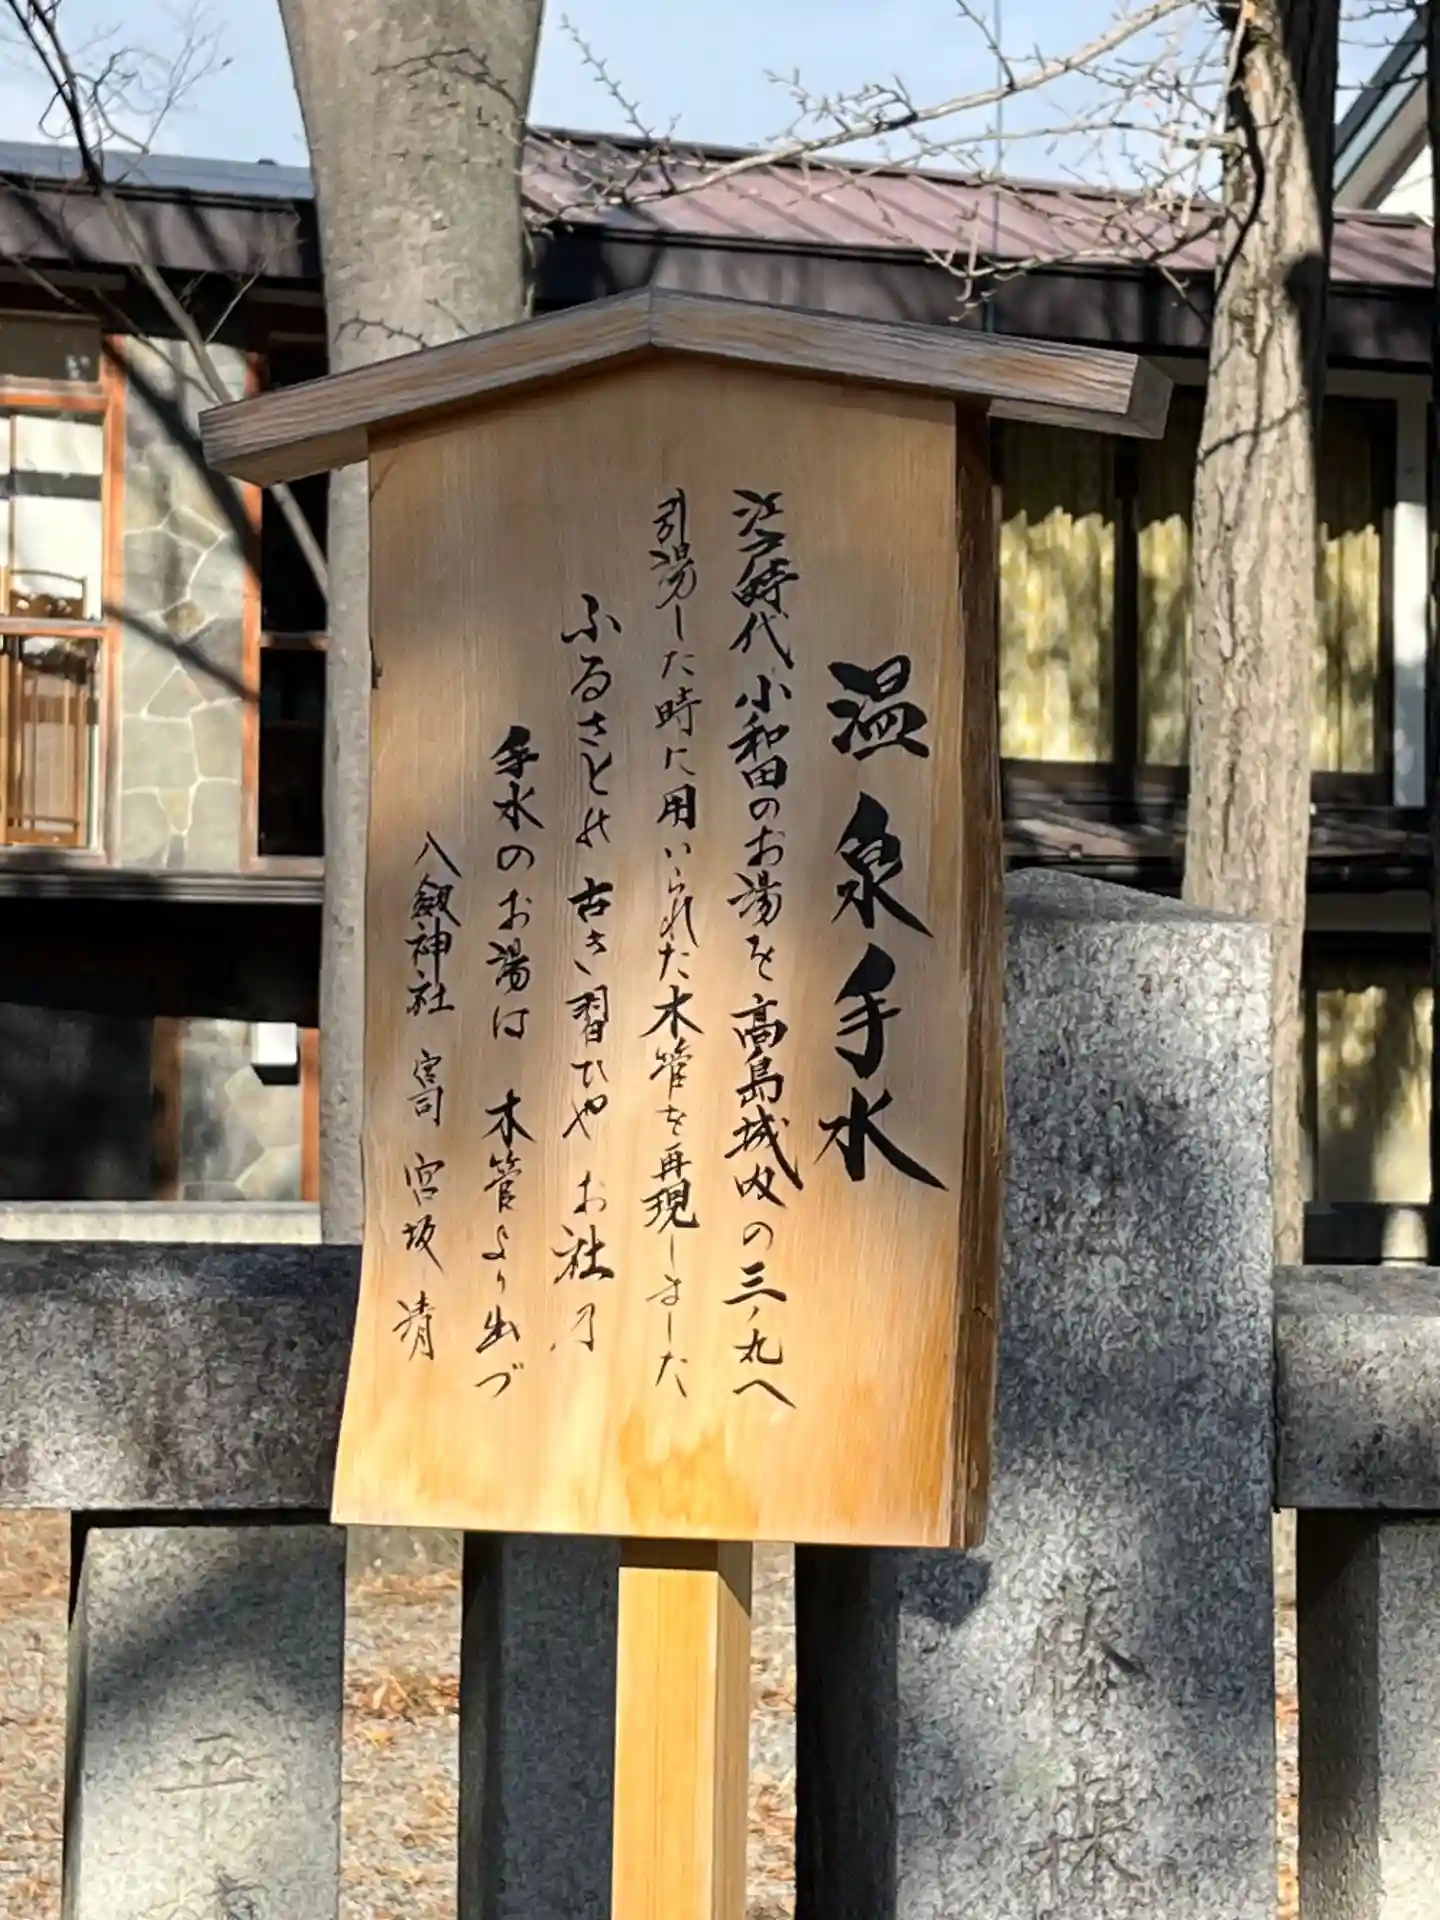 温泉手水
江戸時代小和田のお湯を高島城内の三ノ丸へ
引湯した時に用いられた木管を再現しました
ふるさとの古き習ひやお社乃
手水のお湯は木管より出づ
八劔神社 宮司 宮坂 清